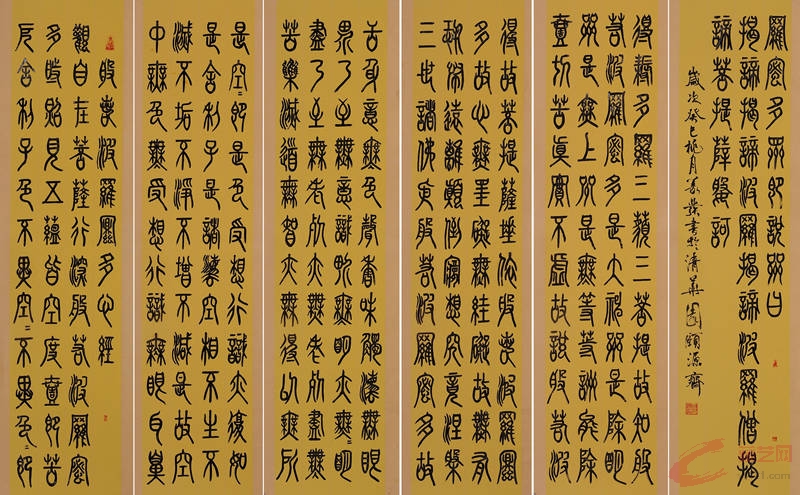 般若波羅蜜多心經
觀自在菩薩行深般若波羅蜜
多時照見五蘊皆空度壹切苦
厄舍利子色不異空〻不異色〻即
是空〻即是色受想行識亦復如
是舍利子是諸法空相不生不
滅不垢不淨不增不減是故空
中無色無受想行識無眼耳鼻
舌身意無色聲香味觸法無眼
界乃至無意識界無〻明亦無〻明
盡乃至無老死亦無老死盡無
苦集滅道無智亦無得以無所
得故菩提薩埵依般若波羅蜜
多故心無罣礙無罣礙故無有
恐怖遠離顛倒夢想究竟涅槃
三世諸佛依般若波羅蜜多故
得耨多羅三藐三菩提故知般
若波羅蜜多是大神咒是明
咒是無上咒是無等等咒能除
壹切苦真實不虛故說般若波
羅蜜多咒即說咒曰
揭諦揭諦波羅揭諦波羅僧揭
諦菩提薩婆訶
歲次癸巳桃月書於清華園頤源齋